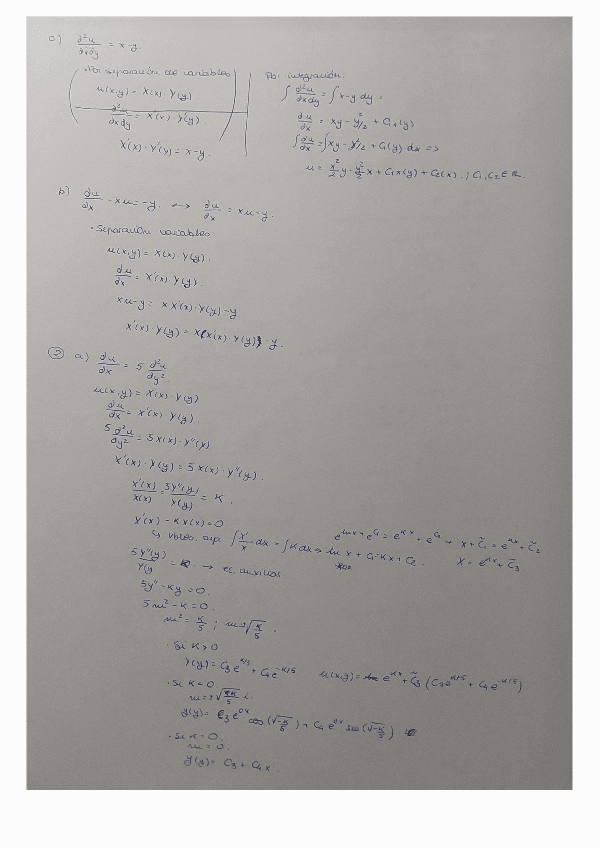 a) ∂²u/∂x∂y = x-y.
· Por separación de variables
u(x,y) = X(x) · Y(y)
∂²u/∂x∂y = X'(x) · Y'(y).
X'(x) · Y'(y) = x-y.
Por integración:
∫ ∂²u/∂x∂y = ∫ x-y dy =
∂u/∂x = xy - y²/2 + C₁(y)
∫ ∂u/∂x = ∫ xy - y²/2 + C₁(y) dx =>
u = x²/2 y - y²/2 x + C₁x(y) + C₂(x). ; C₁, C₂ ∈ ℝ.
b) ∂u/∂x - xu = -y. ∂u/∂x = xu - y.
· Separación variables
u(x,y) = X(x) · Y(y).
∂u/∂x = X'(x) · Y(y).
xu-y = x X'(x) · Y(y) - y
X'(x) · Y(y) = x(X'(x) · Y(y)) - y.
② a) ∂u/∂x = 5 ∂²u/∂y².
u(x,y) = X(x) · Y(y)
∂u/∂x = X'(x) · Y(y).
5 ∂²u/∂y² = 5 X(x) · Y''(y)
X'(x) · Y(y) = 5 X(x) · Y''(y).
X'(x)/X(x) = 5Y''(y)/Y(y) = K.
X'(x) - K X(x) = 0
∫ X'/X dx = ∫ K dx → ln x + C₁ = Kx + C₂.
e^(ln x) + e^(C₁) = e^(Kx) + e^(C₂) → x + C̃₁ = e^(Kx) + C̃₂
X = e^(Kx) + C̃₃
5Y''(y)/Y(y = K → ec. auxiliar
5y'' - Ky = 0.
5m² - K = 0.
m² = K/5 ; m = ±√(K/5).
· Si K > 0
Y(y) = C₃e^(K/5) + C₄e^(-K/5) u(x,y) = e^(Kx) + C̃₃ (C₃e^(K/5) + C₄e^(-K/5))
· Si K = 0
m = ±√(K/5) i.
y(y) = C₃ e^(0x) cos(√(-K/5)) + C₄ e^(0x) sen(√(-K/5))
· Si K = 0.
m = 0.
y(y) = C₃ + C₄x.